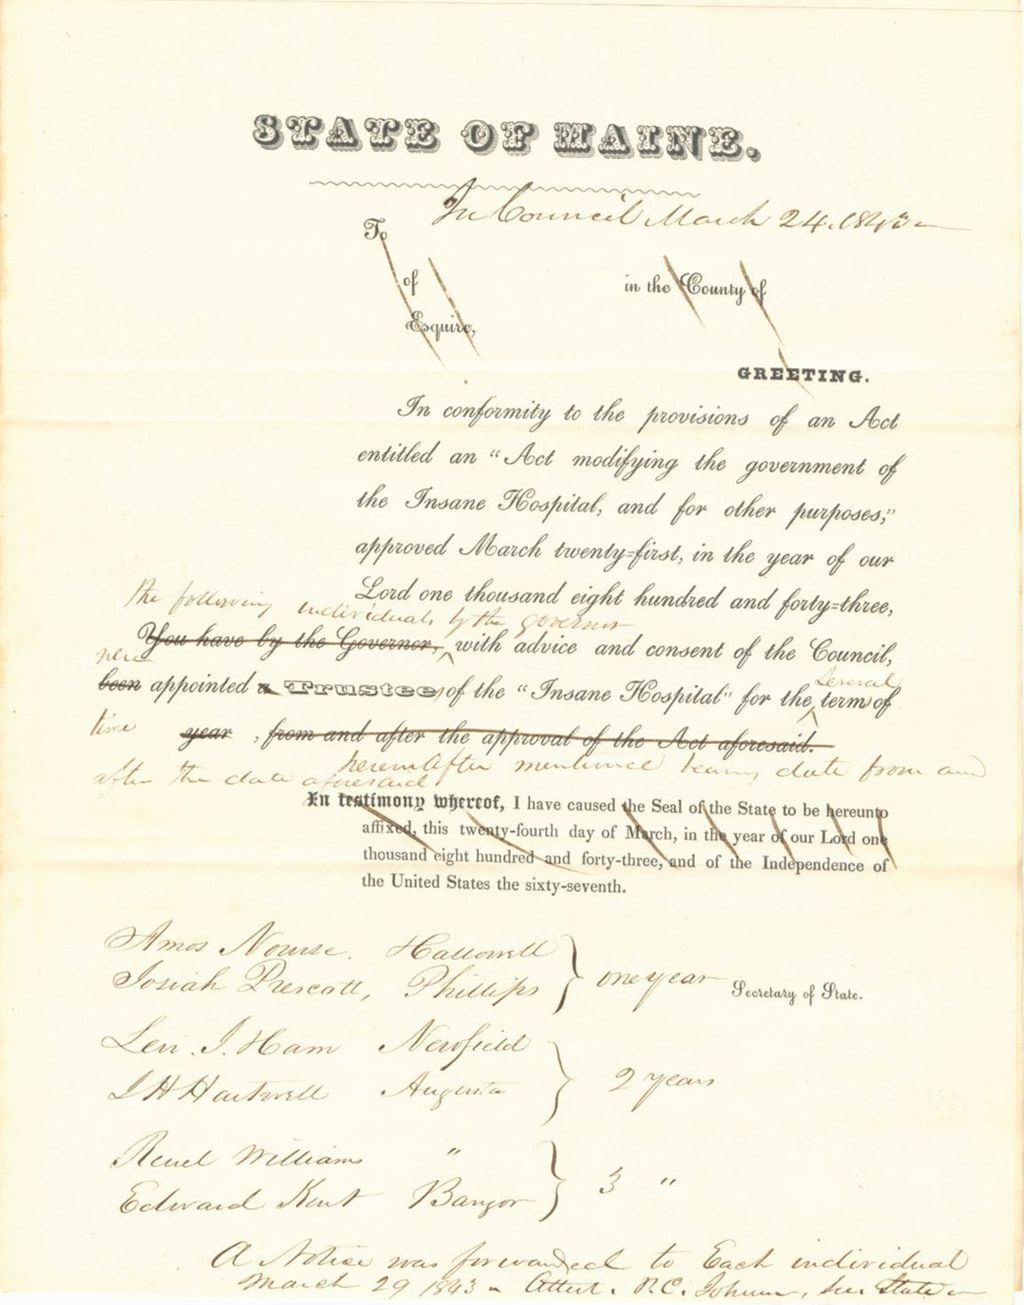 STATE OF MAINE.
In Council March 24. 1843
To
of in the County of
Esquire,
GREETING.
In conformity to the provisions of an Act
entitled an "Act modifying the government of
the Insane Hospital, and for other purposes;"
approved March twenty=first, in the year of our
Lord one thousand eight hundred and forty=three,
the following individuals, by the governor
You have by the Governor, with advice and consent of the Council,
were
been appointed a Trustees of the "Insane Hospital" for the several terms of
time year , from and after the approval of the Act aforesaid.
hereinafter mentioned date from and
after the date aforesaid
In testimony whereof, I have caused the Seal of the State to be hereunto
affixed, this twenty-fourth day of March, in the year of our Lord one
thousand eight hundred and forty-three, and of the Independence of
the United States the sixty-seventh.
Amos Nourse. Hallowell
Josiah Prescott, Phillips } one year
Secretary of State.
Levi. J. Ham Newfield
J H Hartwell Augusta } 2 years
Reuel Williams "
Edward Kent Bangor } 3 "
A Notice was forwarded to Each individual
March 29 1843 Attest. P. C. Johnson, Sec State